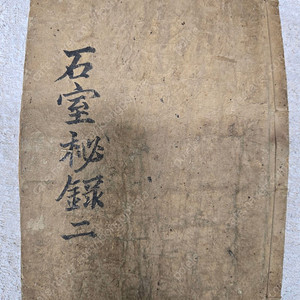 石室秘録二